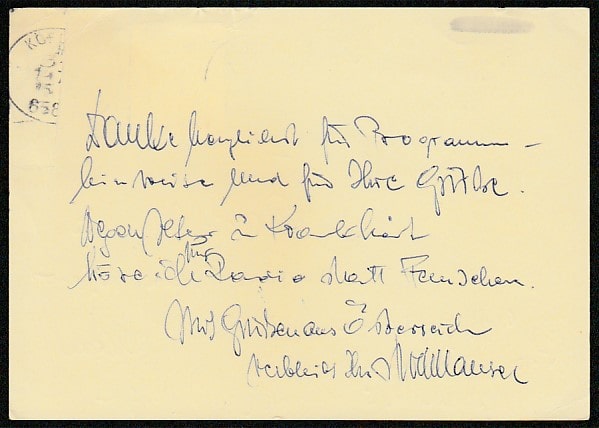 Danke herzlichst für Programm-
hinweise und für Ihre Grüße.
Wegen Krankheit
höre ich nur Radio statt Fernsehen.
Mit Grüßen aus Österreich
verbleibt Ihr